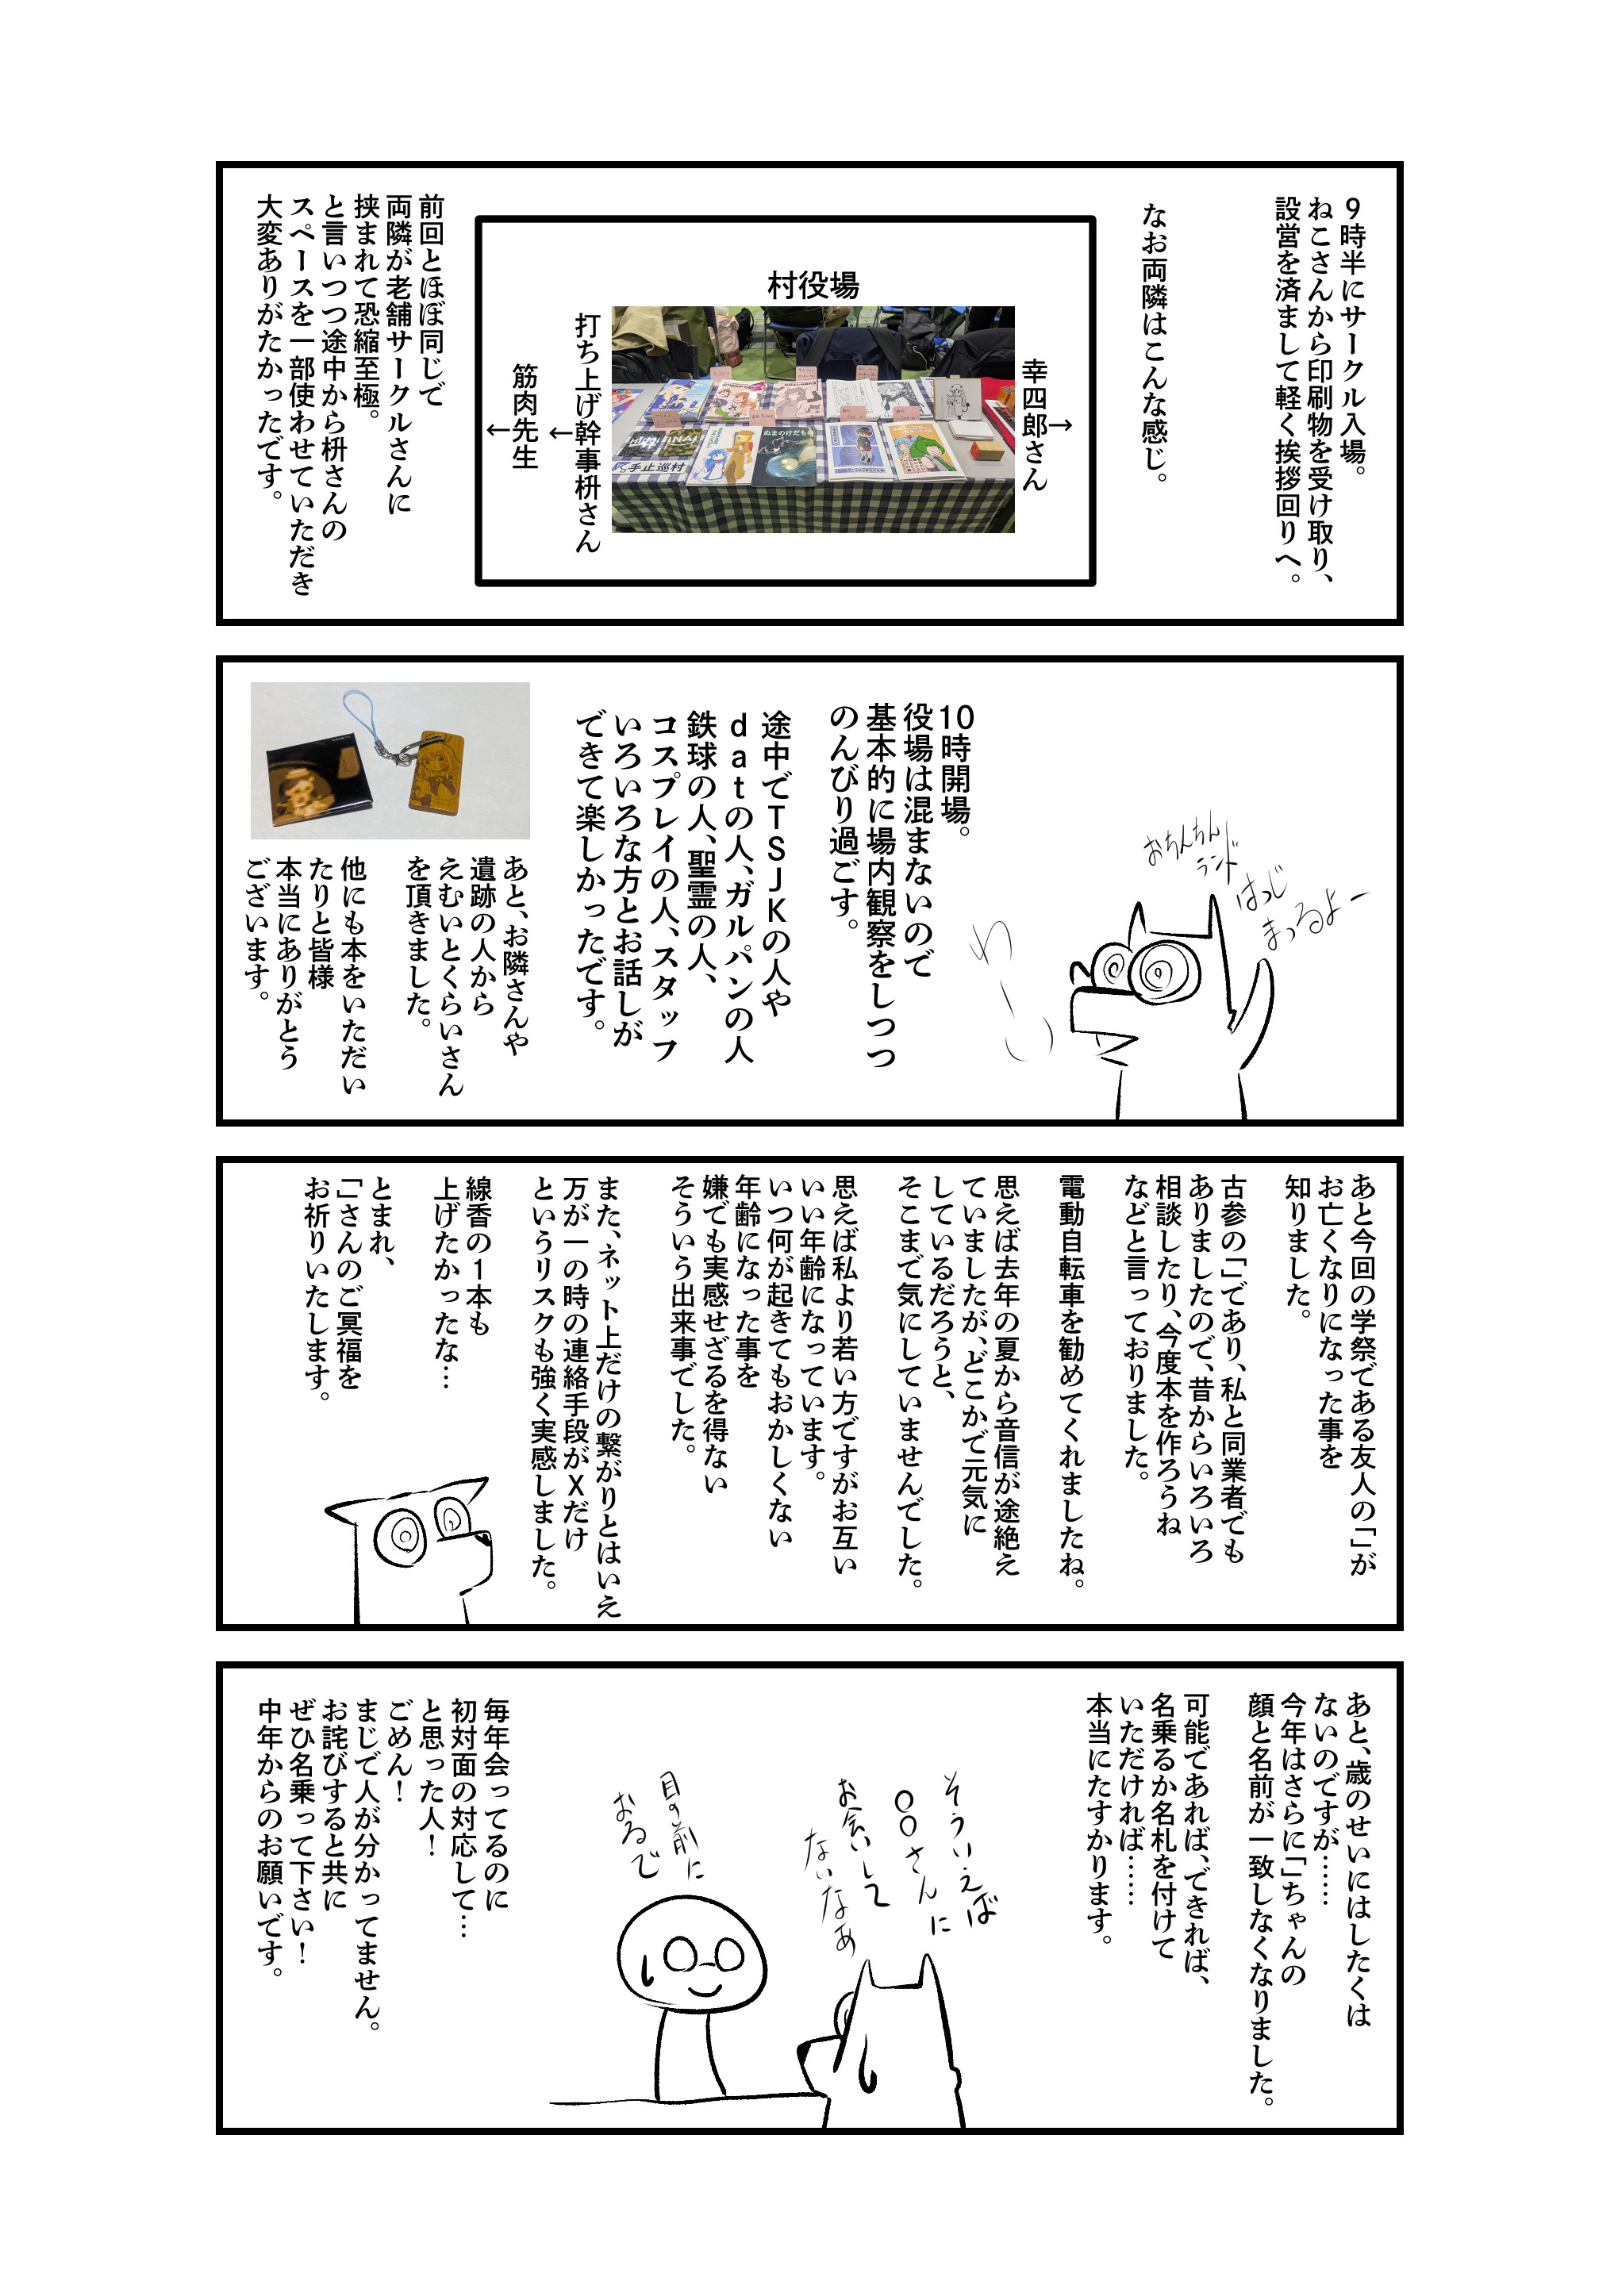 9時半にサークル入場。
ねこさんから印刷物を受け取り、
設営を済まして軽く挨拶回りへ。
なお両隣はこんな感じ。
村役場
幸四郎さん→
打ち上げ幹事枡さん
←
筋肉先生
←
手止巡村
ぬまのけだもの
前回とほぼ同じで
両隣が老舗サークルさんに
挟まれて恐縮至極。
と言いつつ途中から枡さんの
スペースを一部使わせていただき
大変ありがたかったです。
おちんちん
ランド
はっじ
まっるよー
わーい
10時開場。
役場は混まないので
基本的に場内観察をしつつ
のんびり過ごす。
途中でTSJKの人や
datの人、ガルパンの人
鉄球の人、聖霊の人、
コスプレイの人、スタッフ
いろいろな方とお話しが
できて楽しかったです。
あと、お隣さんや
遺跡の人から
えむいとくらいさん
を頂きました。
他にも本をいただい
たりと皆様
本当にありがとう
ございます。
あと今回の学祭である友人の「」が
お亡くなりになった事を
知りました。
古参の「」であり、私と同業者でも
ありましたので、昔からいろいろ
相談したり、今度本を作ろうね
などと言っておりました。
電動自転車を勧めてくれましたね。
思えば去年の夏から音信が途絶え
ていましたが、どこかで元気に
しているだろうと、
そこまで気にしていませんでした。
思えば私より若い方ですがお互い
いい年齢になっています。
いつ何が起きてもおかしくない
年齢になった事を
嫌でも実感せざるを得ない
そういう出来事でした。
また、ネット上だけの繋がりとはいえ
万が一の時の連絡手段がXだけ
というリスクも強く実感しました。
線香の1本も
上げたかったな…
とまれ、
「」さんのご冥福を
お祈りいたします。
あと、歳のせいにはしたくは
ないのですが……
今年はさらに「」ちゃんの
顔と名前が一致しなくなりました。
可能であれば、できれば、
名乗るか名札を付けて
いただければ……
本当にたすかります。
そういえば
○○さんに
お会いして
ないなあ
目の前に
おるで
毎年会ってるのに
初対面の対応して…
と思った人！
ごめん！
まじで人が分かってません。
お詫びすると共に
ぜひ名乗って下さい！
中年からのお願いです。